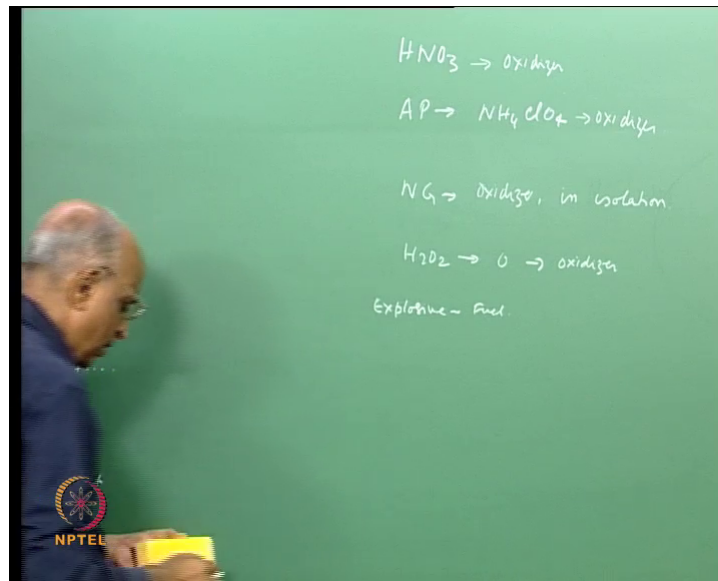 HNO3 → oxidizer
AP → NH4 ClO4 → oxidizer
NG → oxidizer, in isolation.
H2O2 → O → oxidizer
Explosive - Fuel.
NPTEL